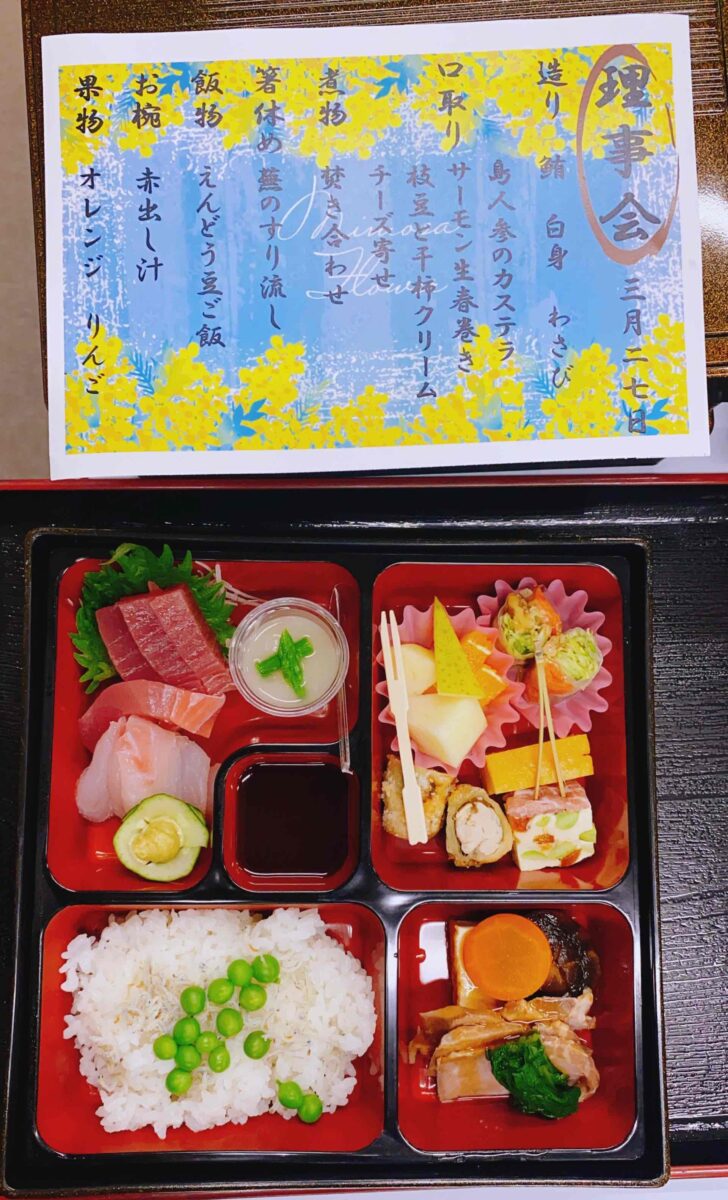 理事会 三月二七日
造り 鮪 白身 わさび
島人参のカステラ
口取り サーモン生春巻き
枝豆と干柿クリーム
チーズ寄せ
煮物 焚き合わせ
箸休め 蕪のすり流し
飯物 えんどう豆ご飯
お椀 赤出し汁
果物 オレンジ りんご
Mimosa
Flower